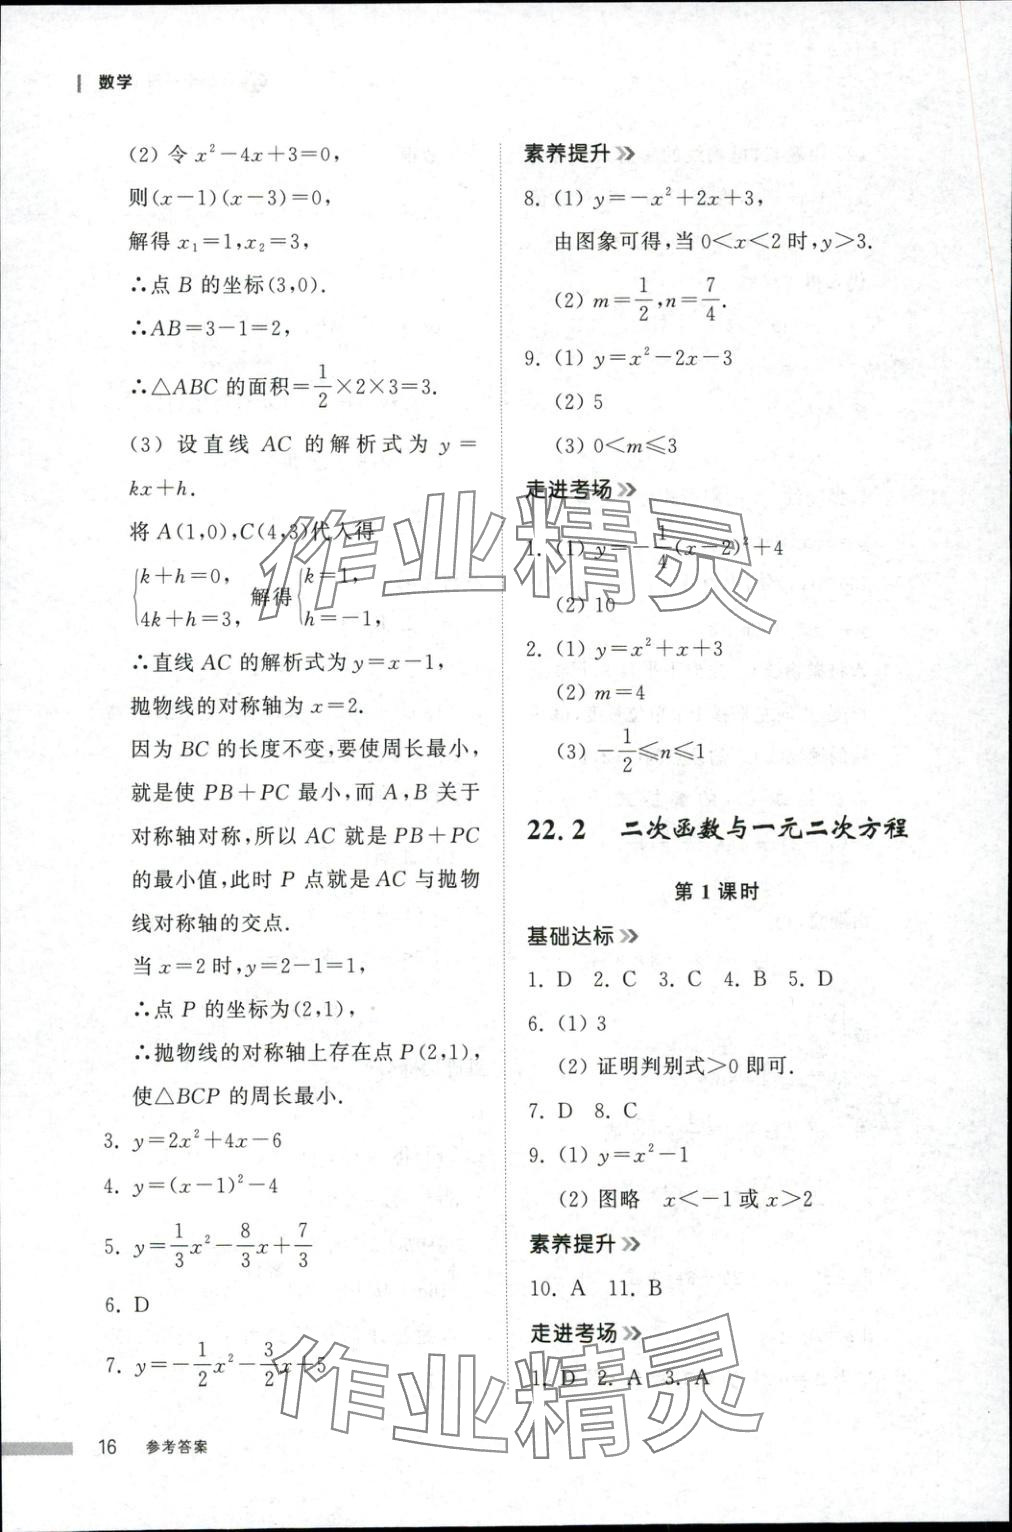 数学
(2) 令 x²－4x＋3＝0，
则(x－1)(x－3)＝0，
解得 x₁＝1，x₂＝3，
∴点 B 的坐标(3,0).
∴AB＝3－1＝2，
∴△ABC 的面积＝1/2×2×3＝3.
(3) 设直线 AC 的解析式为 y＝
kx＋h.
将 A(1,0)，C(4,3)代入得
{k＋h＝0， 4k＋h＝3， 解得 {k＝1， h＝－1，
∴直线 AC 的解析式为 y＝x－1，
抛物线的对称轴为 x＝2.
因为 BC 的长度不变，要使周长最小，
就是使 PB＋PC 最小，而 A，B 关于
对称轴对称，所以 AC 就是 PB＋PC
的最小值，此时 P 点就是 AC 与抛物
线对称轴的交点.
当 x＝2 时，y＝2－1＝1，
∴点 P 的坐标为(2,1)，
∴抛物线的对称轴上存在点 P(2,1)，
使△BCP 的周长最小.
3. y＝2x²＋4x－6
4. y＝(x－1)²－4
5. y＝1/3x²－8/3x＋7/3
6. D
7. y＝－1/2x²－3/2x＋5
素养提升
8. (1) y＝－x²＋2x＋3，
由图象可得，当 0＜x＜2 时，y＞3.
(2) m＝1/2，n＝7/4.
9. (1) y＝x²－2x－3
(2) 5
(3) 0＜m≤3
走进考场
1. (1) y＝－1/4(x－2)²＋4
(2) 10
2. (1) y＝x²＋x＋3
(2) m＝4
(3) －1/2≤n≤1
22.2 二次函数与一元二次方程
第 1 课时
基础达标
1. D 2. C 3. C 4. B 5. D
6. (1) 3
(2) 证明判别式＞0 即可.
7. D 8. C
9. (1) y＝x²－1
(2) 图略 x＜－1 或 x＞2
素养提升
10. A 11. B
走进考场
1. D 2. A 3. A
16 参考答案
作业精灵
作业精灵